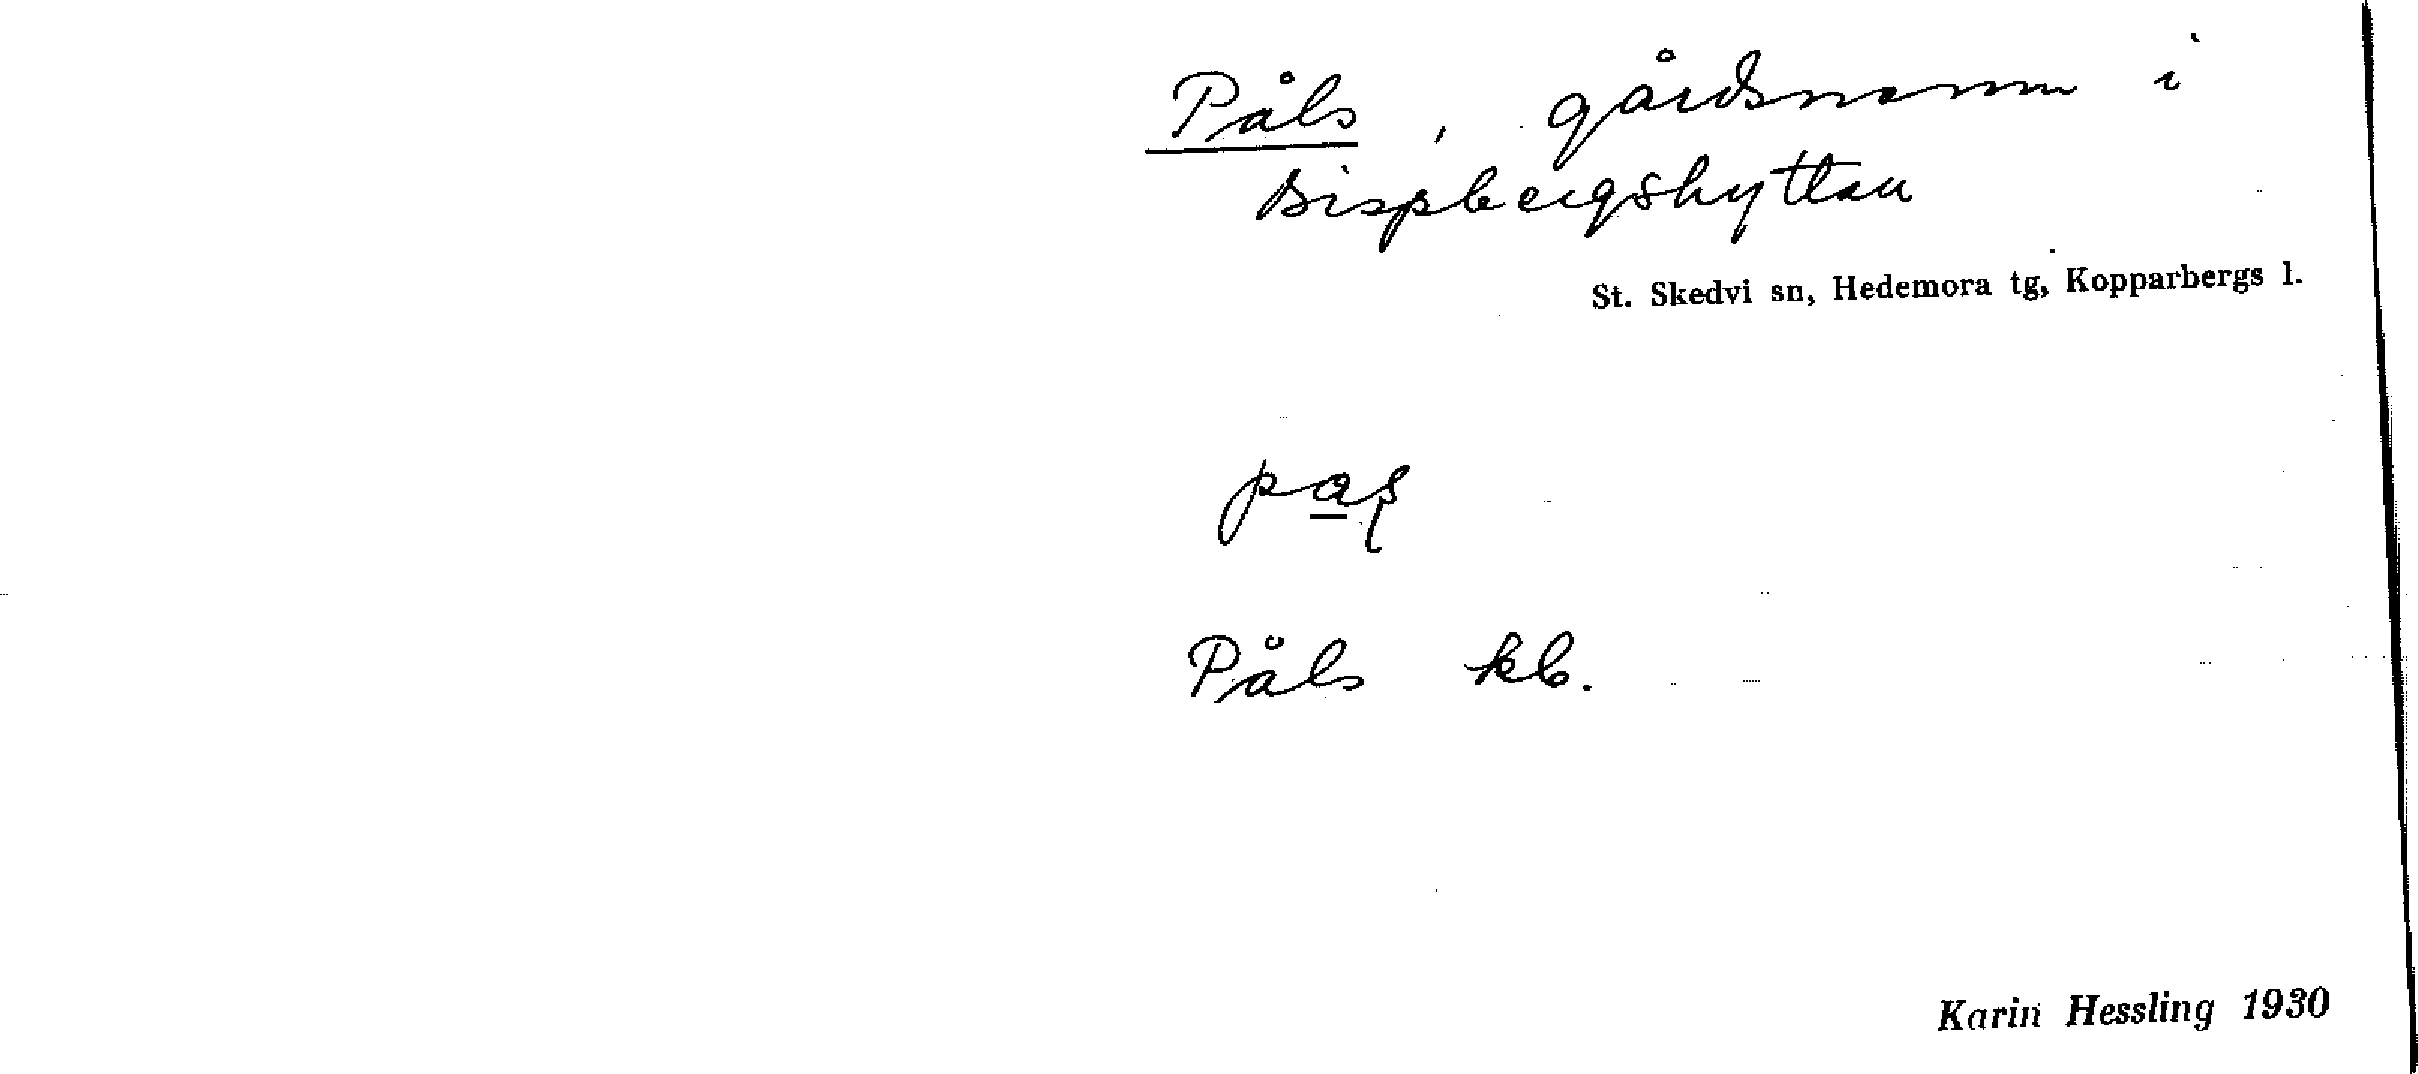 Påls, gårdsnamn i
Bispbergshyttan
St. Skedvi sn, Hedemora tg, Kopparbergs l.
Påls kb.
Karin Hessling 1930